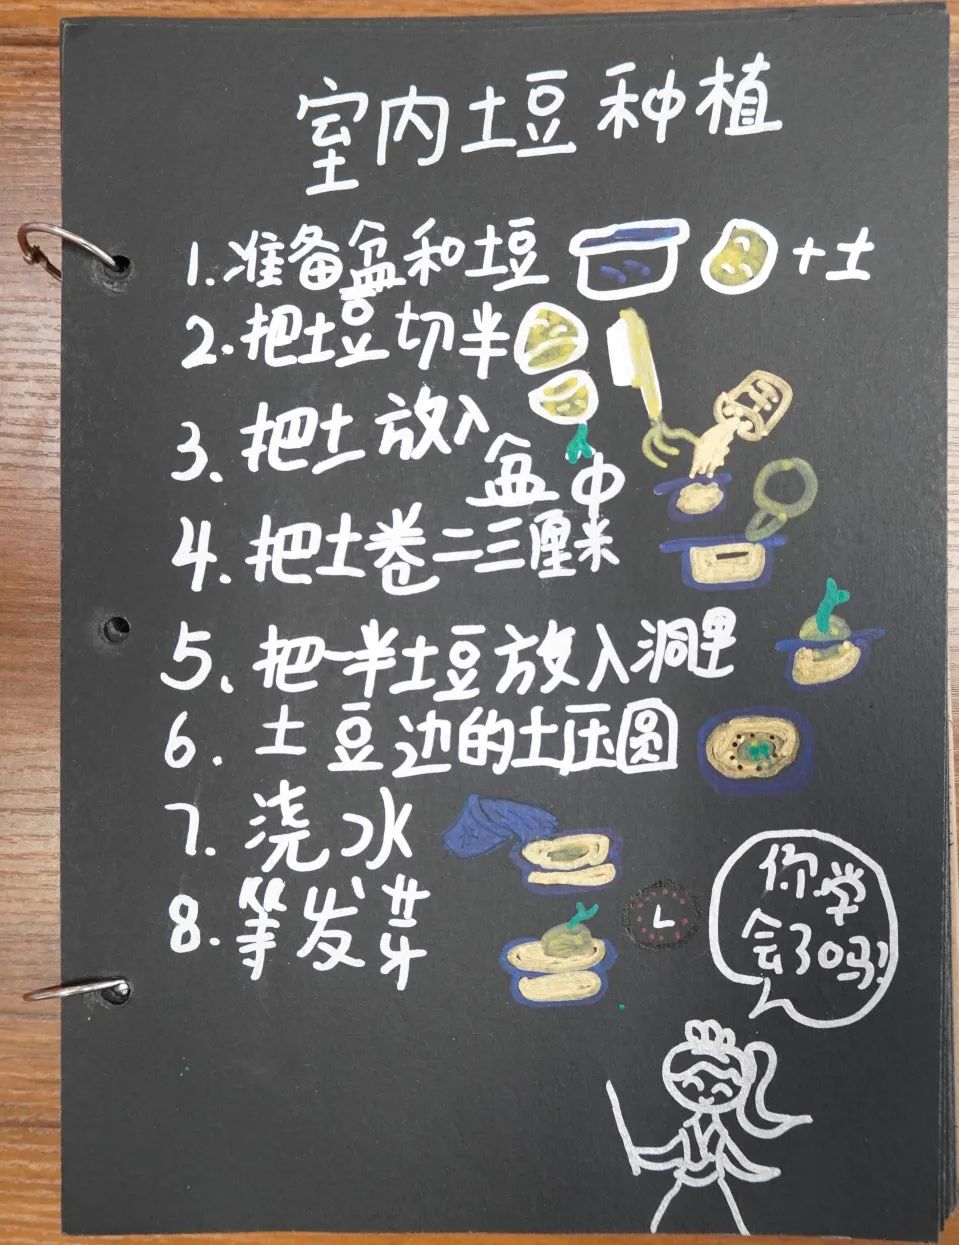 室内土豆种植
1.准备盆和土豆 +土
2.把土豆切半
3.把土放入盆中
4.把土卷二三厘米
5.把一半土豆放入洞里
6.土豆边的土压圆
7.浇水
8.等发芽
你学
会了吗?